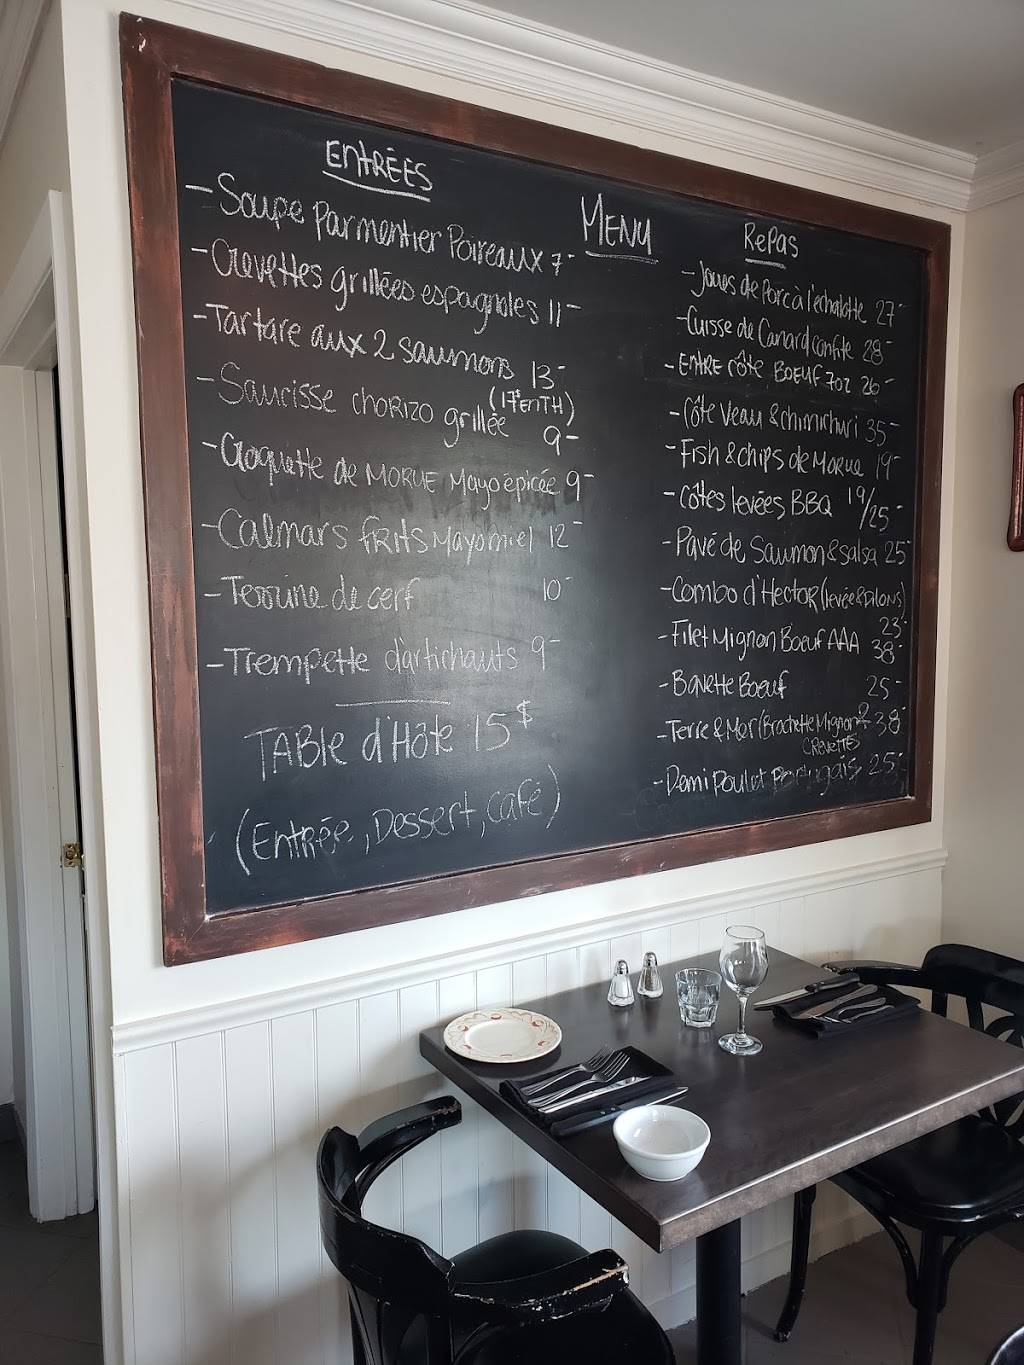 MENU
ENTRÉES
- Soupe Parmentier Poireaux 7-
- Crevettes grillées espagnoles 11-
- Tartare aux 2 saumons 13-
(17$ en TH)
- Saucisse chorizo grillée 9-
- Croquette de MORUE Mayo épicée 9-
- Calmars frits Mayo miel 12-
- Terrine de cerf 10-
- Trempette d'artichauts 9-
TABle d'Hôte 15$
(Entrée, Dessert, café)
Repas
- Joues de Porc à l'echalotte 27-
- Cuisse de Canard confite 28-
- ENTRE côte BOEUF 7oz 26-
- Côte Veau & chimichuri 35-
- Fish & chips de Morue 19-
- côtes levées BBQ 19/25-
- Pavé de Saumon & salsa 25-
- Combo d'Hector (levée & PILONS)
23-
- Filet Mignon Boeuf AAA 38-
- Bavette Boeuf 25-
- Terre & Mer (Brochette Mignon & 38-
CREVETTES
- Demi Poulet Portugais 25-